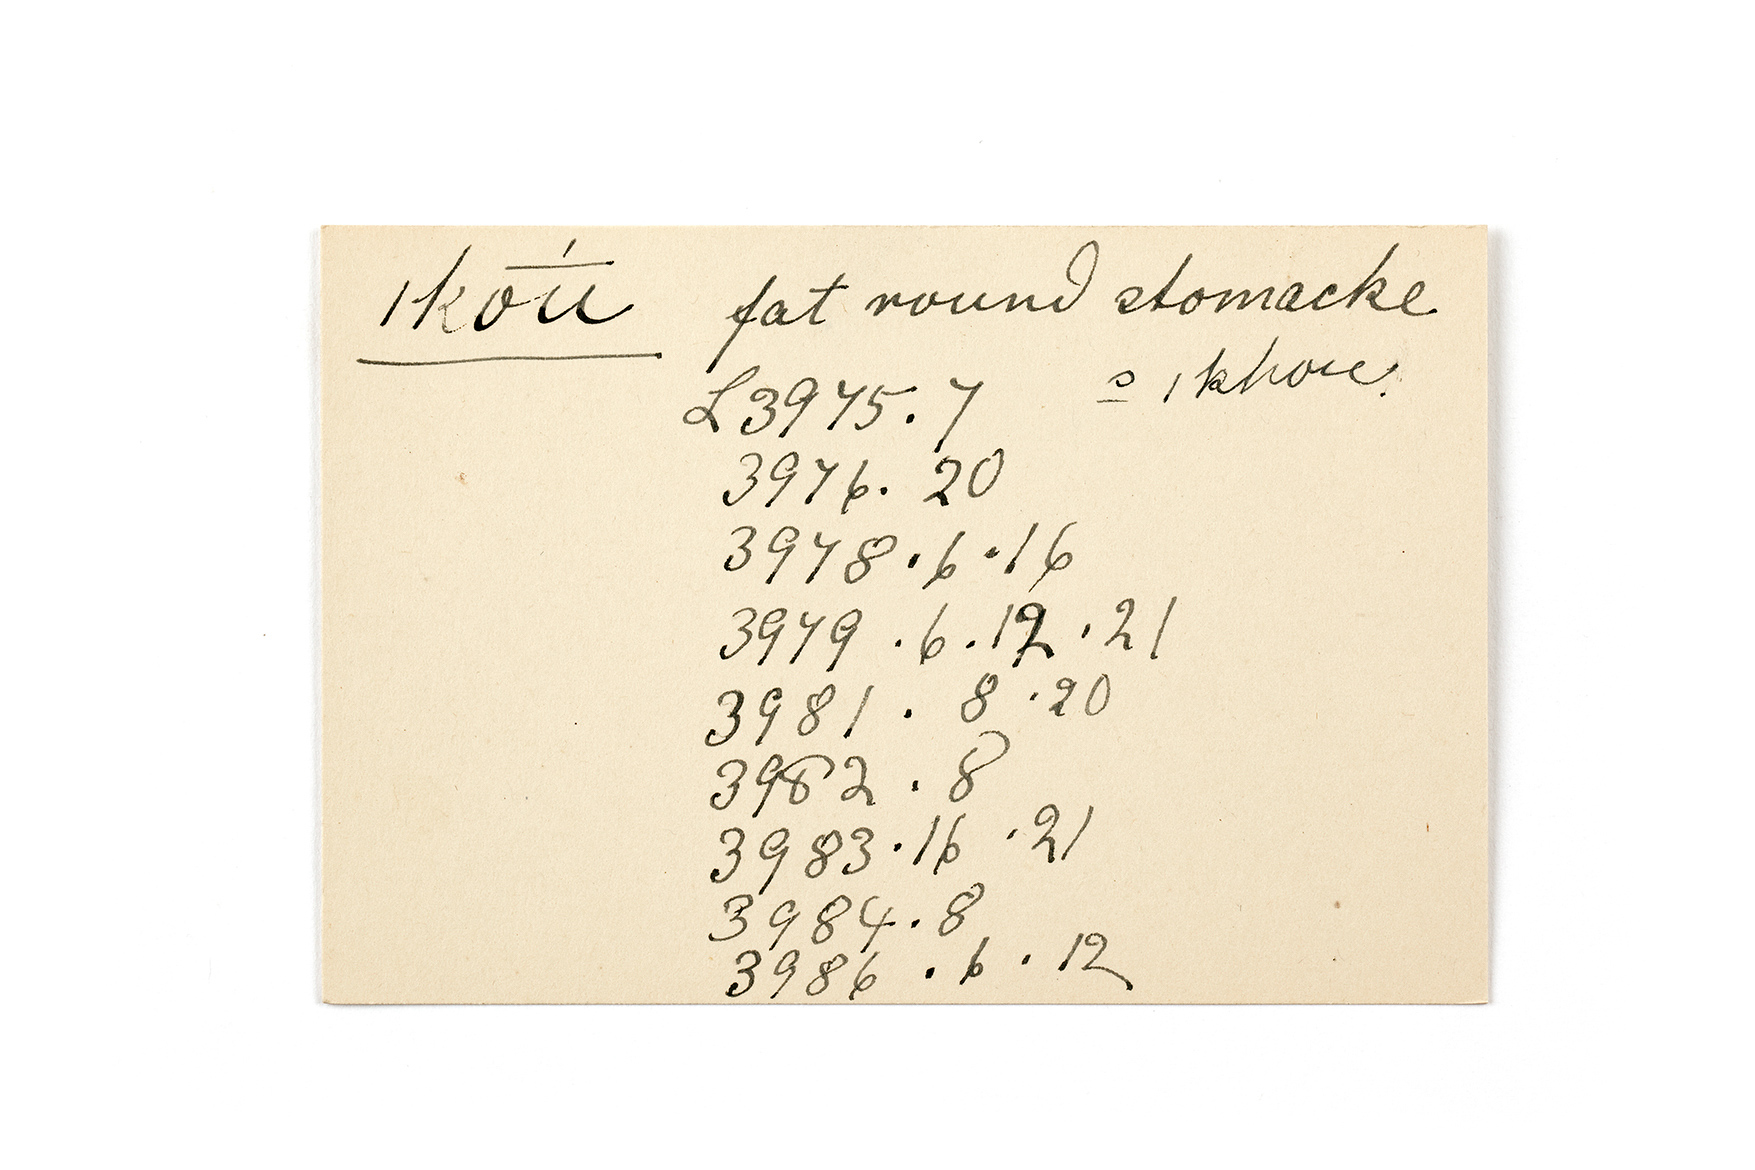 ıkōú fat round stomacke
s ıkhou.
L3975.7
3976. 20
3978.6.16
3979 .6.12 .21
3981 . 8 .20
3982 . 8
3983.16 .21
3984.8
3986 . 6 . 12